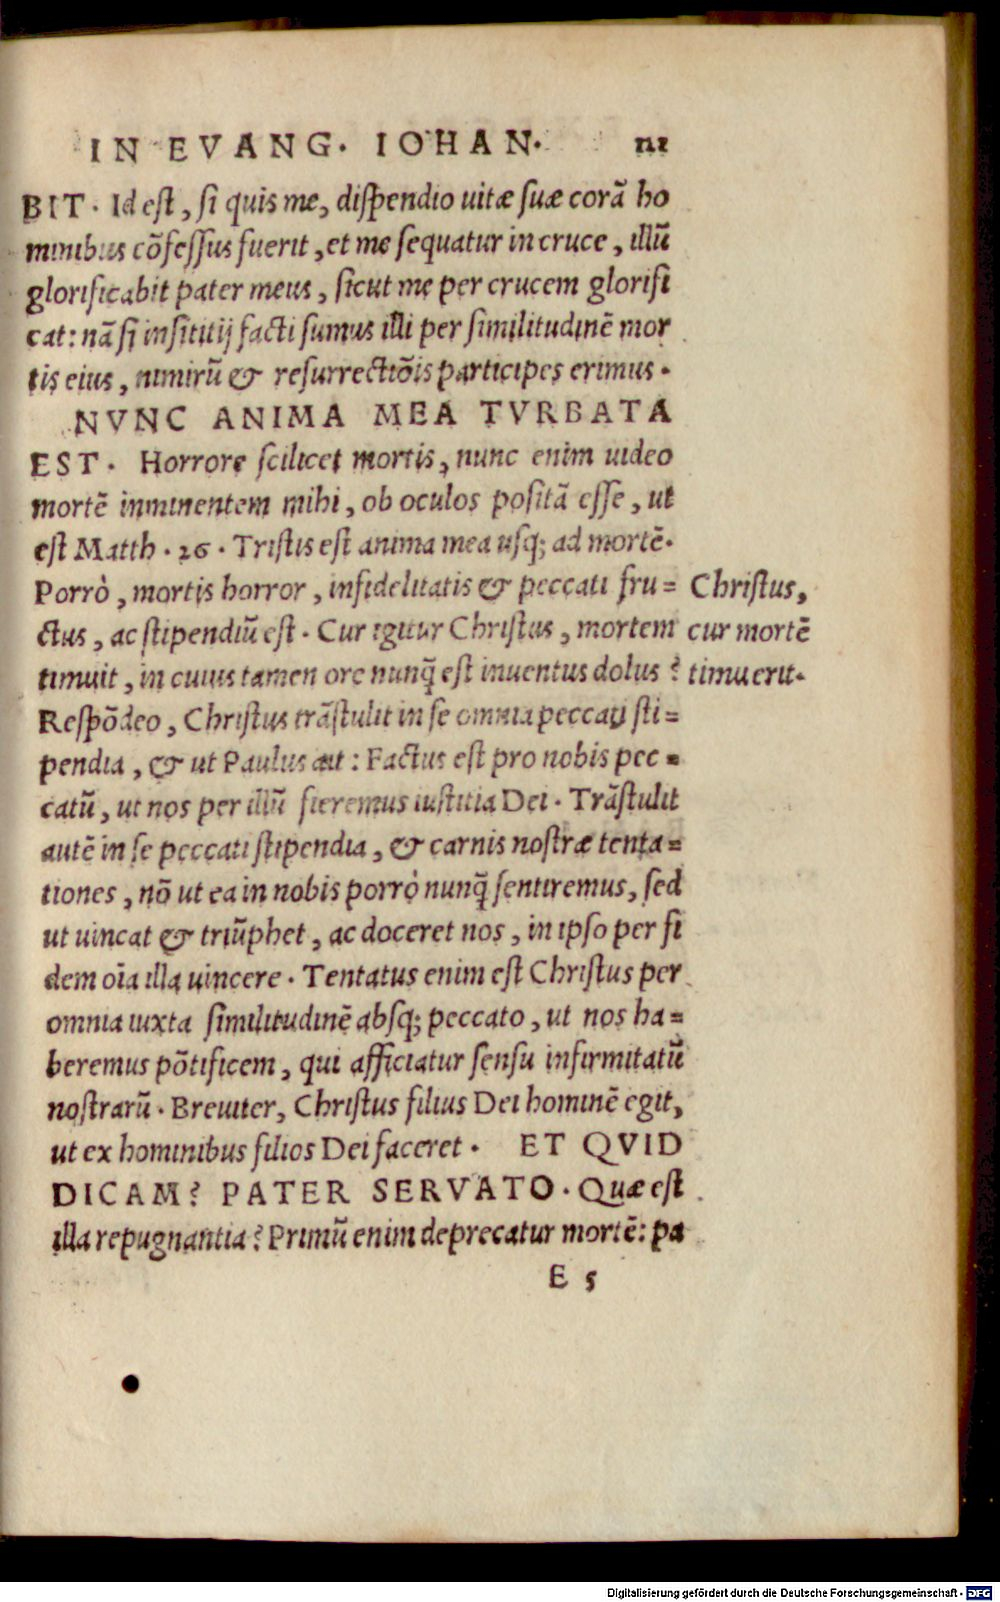 IN EVANG. IOHAN.
BIT. Id est, si quis me, dispendio uitæ suæ corã ho
minibus cõfessus fuerit, et me sequatur in cruce, illũ
glorificabit pater meus, sicut me per crucem glorifi
cat: nã si insititij facti sumus illi per similitudinẽ mor
tis eius, nimirũ & resurrectiõis participes erimus.
NVNC ANIMA MEA TVRBATA
EST. Horrore scilicet mortis, nunc enim uideo
mortẽ inminentem mihi, ob oculos positã esse, ut
est Matth. 26. Tristis est anima mea usq; ad mortẽ.
Porrò, mortis horror, infidelitatis & peccati fru= Christus,
ctus, ac stipendiũ est. Cur igitur Christus, mortem cur mortẽ
timuit, in cuius tamen ore nunq̃ est inuentus dolus? timuerit.
Respõdeo, Christus trãstulit in se omnia peccati sti=
pendia, & ut Paulus ait: Factus est pro nobis pec=
catũ, ut nos per illũ fieremus iustitia Dei. Trãstulit
autẽ in se peccati stipendia, & carnis nostræ tenta=
tiones, nõ ut ea in nobis porrò nunq̃ sentiremus, sed
ut uincat & triũphet, ac doceret nos, in ipso per fi
dem oĩa illa uincere. Tentatus enim est Christus per
omnia iuxta similitudinẽ absq; peccato, ut nos ha=
beremus põtificem, qui afficiatur sensu infirmitatũ
nostrarũ. Breuiter, Christus filius Dei hominẽ egit,
ut ex hominibus filios Dei faceret. ET QVID
DICAM? PATER SERVATO. Quæ est
illa repugnantia? Primũ enim deprecatur mortẽ: pa
E 5
Digitalisierung gefördert durch die Deutsche Forschungsgemeinschaft - DFG